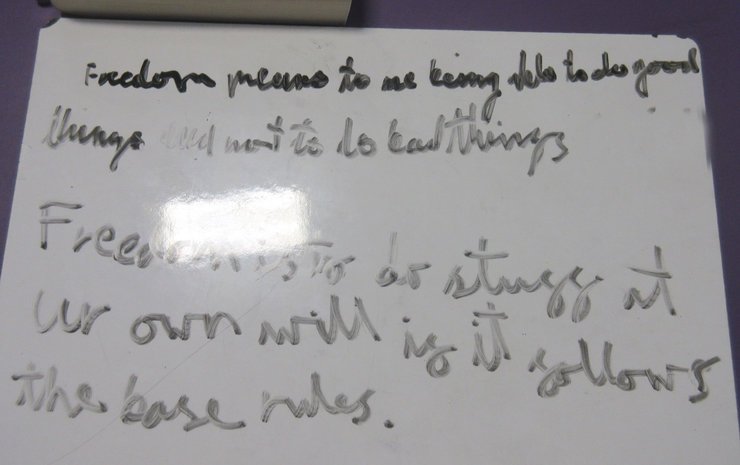 Freedom means to me being able to do good
things and not to do bad things
Freedom is to do stuff at
ur own will if it follows
the base rules.